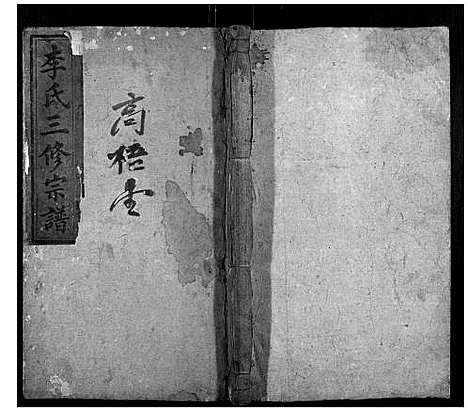 李氏三修宗譜
高梧堂